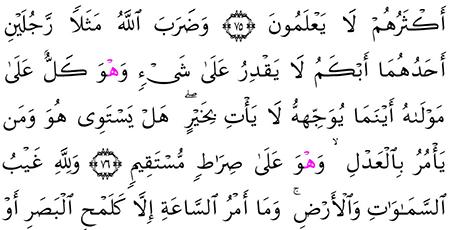 أَكْثَرُهُمْ لَا يَعْلَمُونَ ۝٧٥ وَضَرَبَ اللَّهُ مَثَلًا رَّجُلَيْنِ
أَحَدُهُمَا أَبْكَمُ لَا يَقْدِرُ عَلَىٰ شَىْءٍ وَهْوَ كَلٌّ عَلَىٰ
مَوْلَىٰهُ أَيْنَمَا يُوَجِّههُّ لَا يَأْتِ بِخَيْرٍ ۖ هَلْ يَسْتَوِى هُوَ وَمَن
يَأْمُرُ بِالْعَدْلِ ۙ وَهْوَ عَلَىٰ صِرَاطٍ مُّسْتَقِيمٍ ۝٧٦ وَلِلَّهِ غَيْبُ
السَّمَـٰوَٰتِ وَالْأَرْضِ ۚ وَمَا أَمْرُ السَّاعَةِ إِلَّا كَلَمْحِ الْبَصَرِ أَوْ